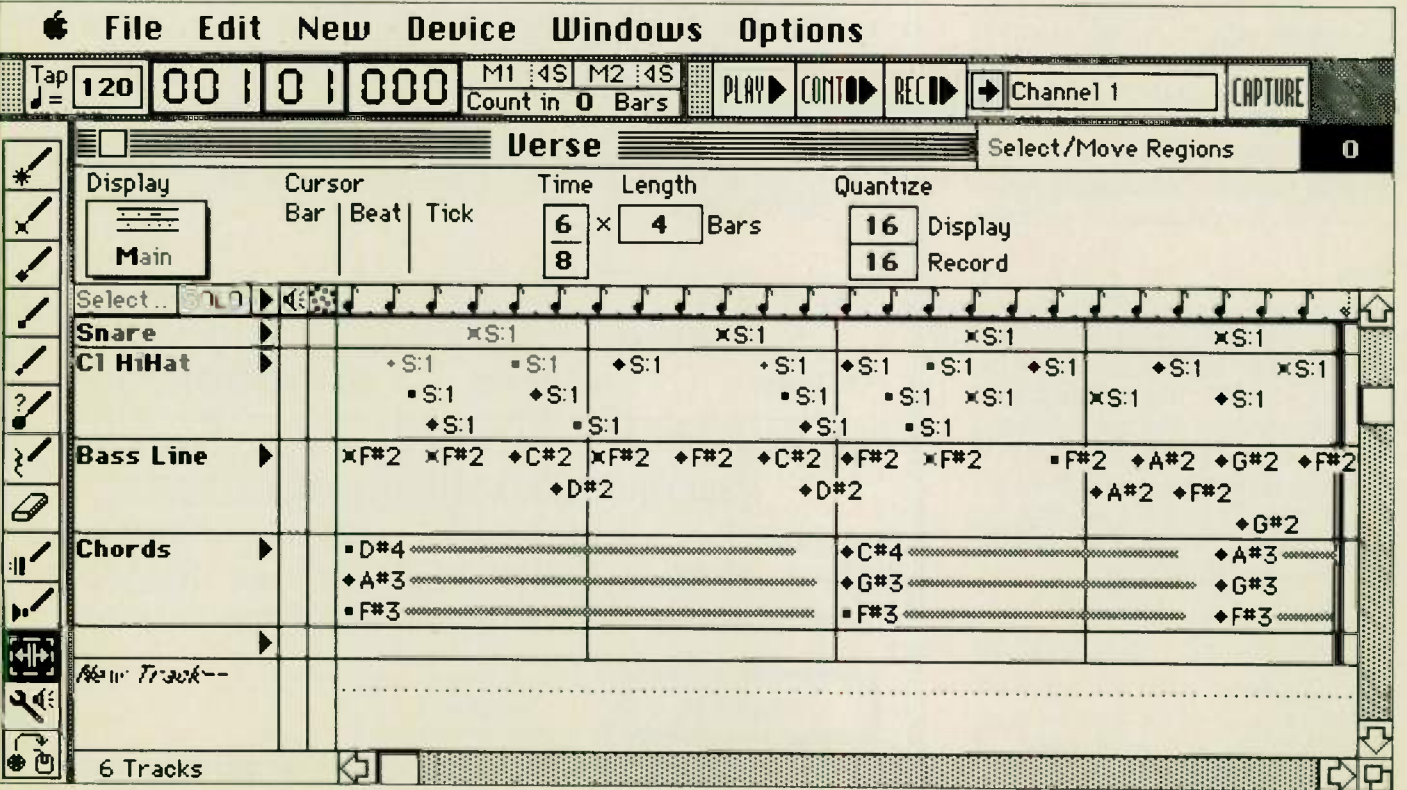 File Edit New Device Windows Options
Tap 120 001 01 000 M1 S M2 S PLAY CONT REC Channel 1 CAPTURE
= Count in 0 Bars
Verse Select/Move Regions 0
Display Cursor Time Length Quantize
Bar Beat Tick 6 × 4 Bars 16 Display
Main 8 16 Record
Select.. SOLO
Snare S:1 S:1 S:1 S:1
Cl HiHat S:1 S:1 S:1 S:1 S:1 S:1 S:1 S:1 S:1
S:1 S:1 S:1 S:1 S:1 S:1 S:1
S:1 S:1 S:1 S:1
Bass Line F#2 F#2 C#2 F#2 F#2 C#2 F#2 F#2 F#2 A#2 G#2 F#2
D#2 D#2 A#2 F#2
G#2
Chords D#4 C#4 A#3
A#3 G#3 G#3
F#3 F#3 F#3
New Track--
6 Tracks